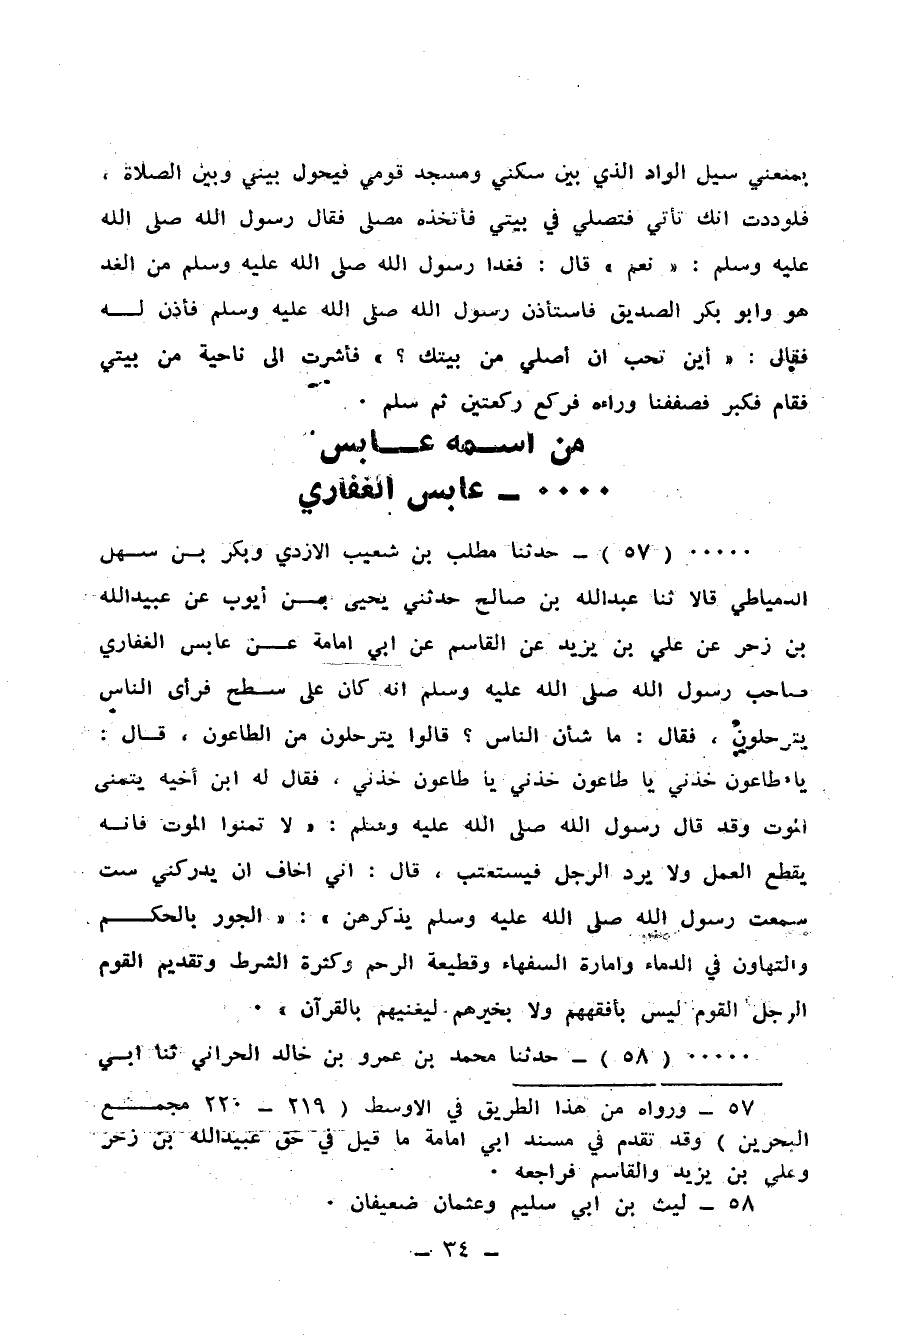 يمنعني سيل الواد الذي بين سكني ومسجد قومي فيحول بيني وبين الصلاة ،
فلوددت انك تأتي فتصلي في بيتي فأتخذه مصلى فقال رسول الله صلى الله
عليه وسلم : « نعم » قال : فغدا رسول الله صلى الله عليه وسلم من الغد
هو وابو بكر الصديق فاستأذن رسول الله صلى الله عليه وسلم فأذن لــه
فقال : « أين تحب ان أصلي من بيتك ؟ » فأشرت الى ناحية من بيتي
فقام فكبر فصففنا وراءه فركع ركعتين ثم سلم ٠
من اسـمه عـابس
٠٠٠٠ ـ عابس الغفاري
٠٠٠٠٠ ( ٥٧ ) ـ حدثنا مطلب بن شعيب الازدي وبكر بـن سـهل
الدمياطي قالا ثنا عبدالله بن صالح حدثني يحيى بـن أيوب عن عبيدالله
بن زحر عن علي بن يزيد عن القاسم عن ابي امامة عـن عابس الغفاري
صاحب رسول الله صلى الله عليه وسلم انه كان على سـطح فرأى الناس
يترحلون ، فقال : ما شأن الناس ؟ قالوا يترحلون من الطاعون ، قـال :
يا طاعون خذني يا طاعون خذني يا طاعون خذني ، فقال له ابن أخيه يتمنى
الموت وقد قال رسول الله صلى الله عليه وسلم : « لا تمنوا الموت فانـه
يقطع العمل ولا يرد الرجل فيستعتب ، قال : اني اخاف ان يدركني ست
سمعت رسول الله صلى الله عليه وسلم يذكرهن » : « الجور بالحكـم
والتهاون في الدماء وامارة السفهاء وقطيعة الرحم وكثرة الشرط وتقديم القوم
الرجل القوم ليس بأفقههم ولا بخيرهم ليغنيهم بالقرآن » ٠
٠٠٠٠٠ ( ٥٨ ) ـ حدثنا محمد بن عمرو بن خالد الحراني ثنا ابـي
٥٧ ـ ورواه من هذا الطريق في الاوسط ( ٢١٩ ـ ٢٢٠ مجمـع
البحرين ) وقد تقدم في مسند ابي امامة ما قيل في حق عبيدالله بن زحر
وعلي بن يزيد والقاسم فراجعه ٠
٥٨ ـ ليث بن ابي سليم وعثمان ضعيفان ٠
ـ ٣٤ ـ